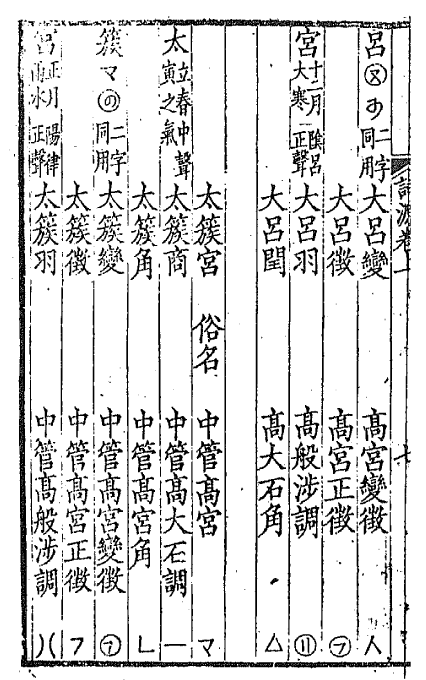 詞源卷
七
呂 ㊇ 二字同用 大呂變 高宮變徵 人
大呂徵 高宮正徵 ㋫
宮 十二月大寒 陰呂正聲 大呂羽 高般涉調 ⑪
大呂閏 高大石角 △
太簇宮 俗名 中管高宮 マ
太 立春中聲寅之氣 太簇商 中管高大石調 一
太簇角 中管高宮角 ㄴ
簇 マ ㋨ 二字同用 太簇變 中管高宮變徵 ㋫
太簇徵 中管高宮正徵 フ
宮 正月雨水 陽律正聲 太簇羽 中管高般涉調 )(